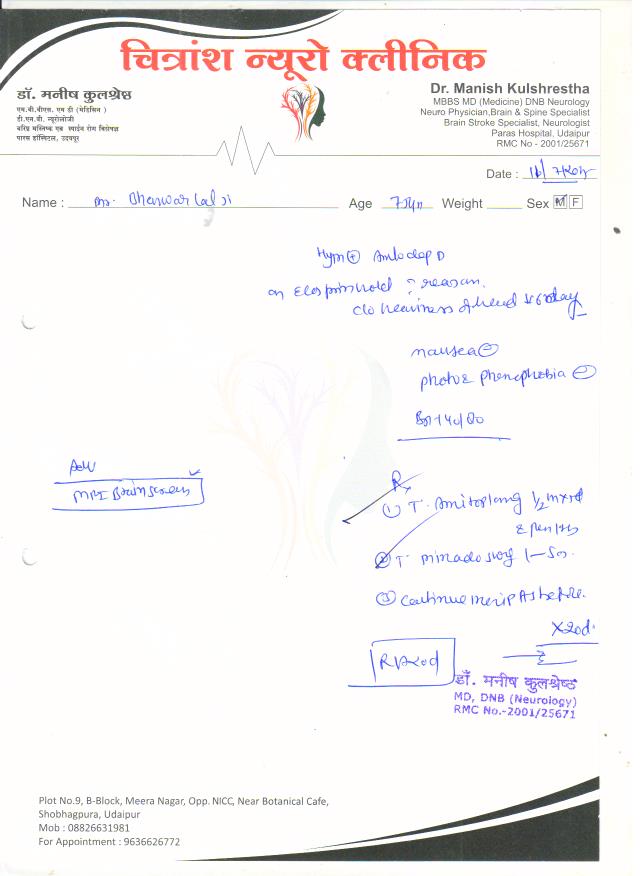 चित्रांश न्यूरो क्लीनिक
डॉ. मनीष कुलश्रेष्ठ
एम.बी.बी.एस. एम डी (मेडिसिन)
डी.एन.बी. न्यूरोलॉजी
वरिष्ठ मस्तिष्क एवं स्पाईन रोग विशेषज्ञ
पारस हॉस्पिटल, उदयपुर
Dr. Manish Kulshrestha
MBBS MD (Medicine) DNB Neurology
Neuro Physician,Brain & Spine Specialist
Brain Stroke Specialist, Neurologist
Paras Hospital, Udaipur
RMC No - 2001/25671
Date :
Name : Mr. Bhanwar Lal Ji Age Weight Sex M F
Hypn + Amlodep D
reason.
c/o heaviness of head
nausea -
photo & phonophobia -
Adv
MRI Brain screen
Rx
① T. 1/2
② T.
③ Continue As before.
X20d.
R/A 20d
डॉ. मनीष कुलश्रेष्ठ
MD, DNB (Neurology)
RMC No.-2001/25671
Plot No.9, B-Block, Meera Nagar, Opp. NICC, Near Botanical Cafe,
Shobhagpura, Udaipur
Mob : 08826631981
For Appointment : 9636626772